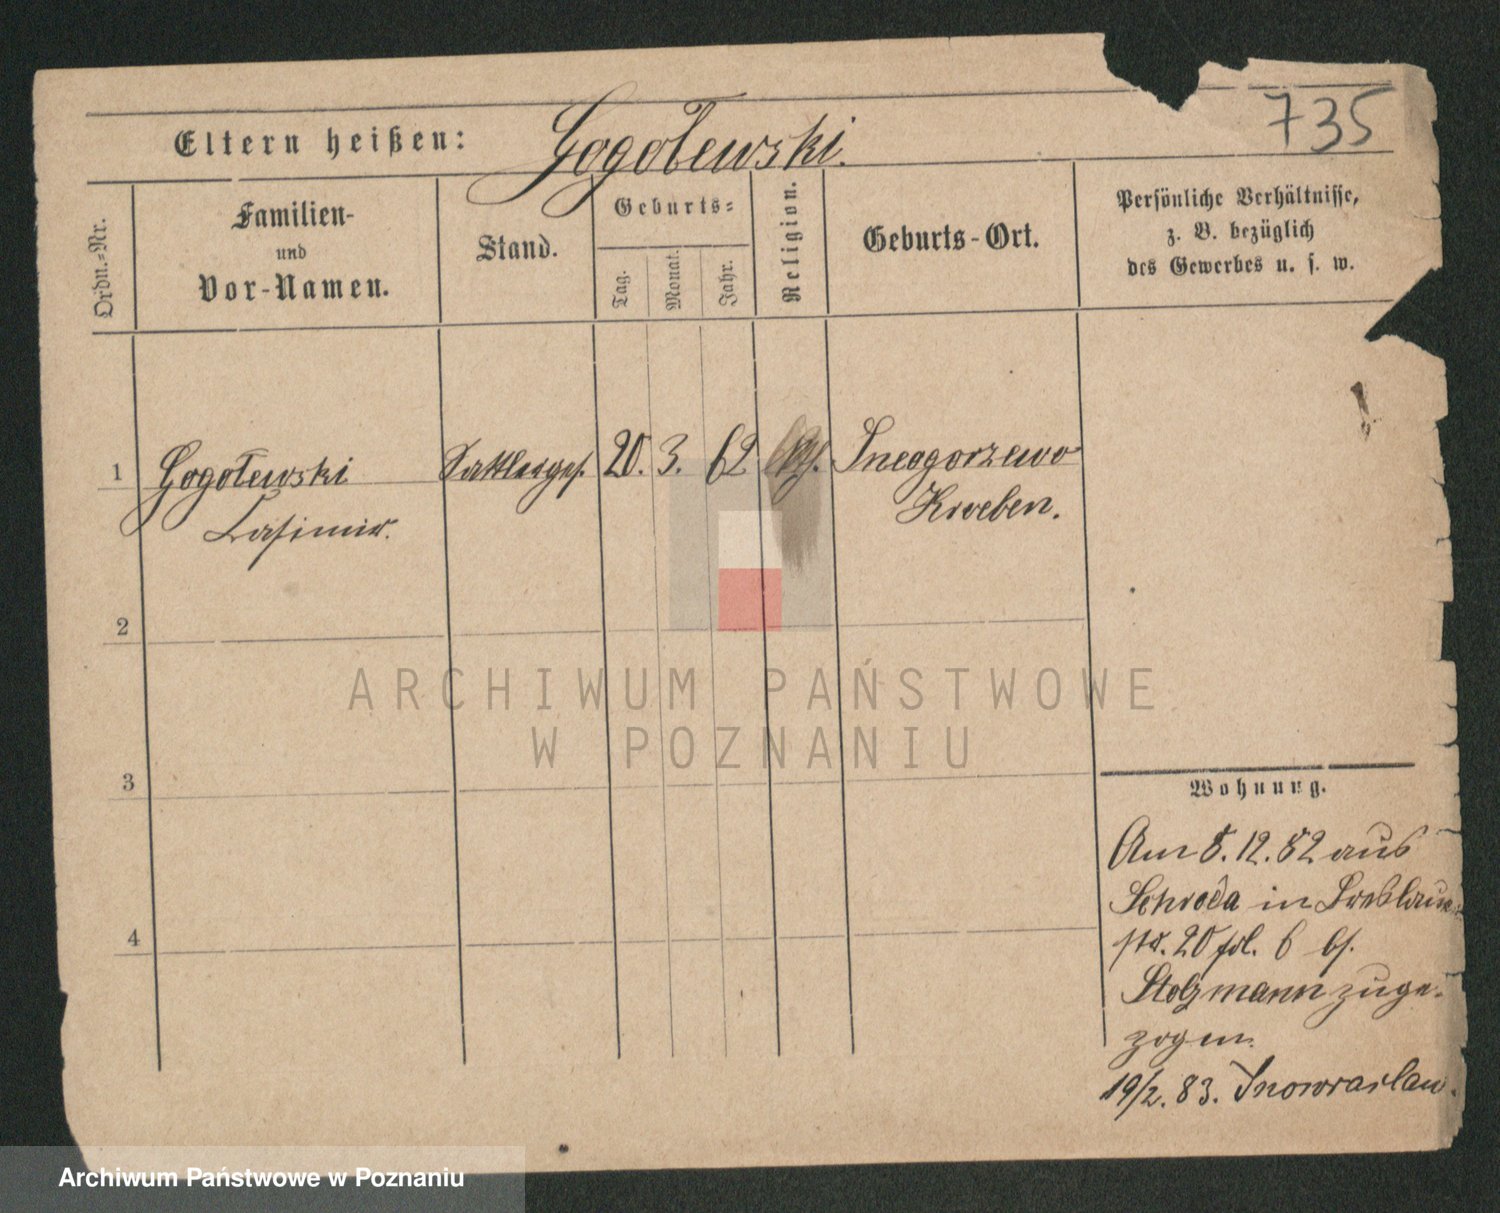 735
Eltern heißen: Gogolewski.
Ordn.-Nr.
Familien-
und
Vor-Namen.
Stand.
Geburts-
Tag.
Monat.
Jahr.
Religion.
Geburts-Ort.
Persönliche Verhältnisse,
z. B. bezüglich
des Gewerbes u. s. w.
1 Gogolewski Sattlerges. 20. 3. 62 Sneogorzewo
Casimir. Kroeben.
2
3
4
Wohnung.
Am 8. 12. 82 aus
Schroda in Breslauer
str. 20 fol. 6 bs.
Stolzmann zuge-
zogen.
19/2. 83. Inowraclaw.
ARCHIWUM PAŃSTWOWE
W POZNANIU
Archiwum Państwowe w Poznaniu